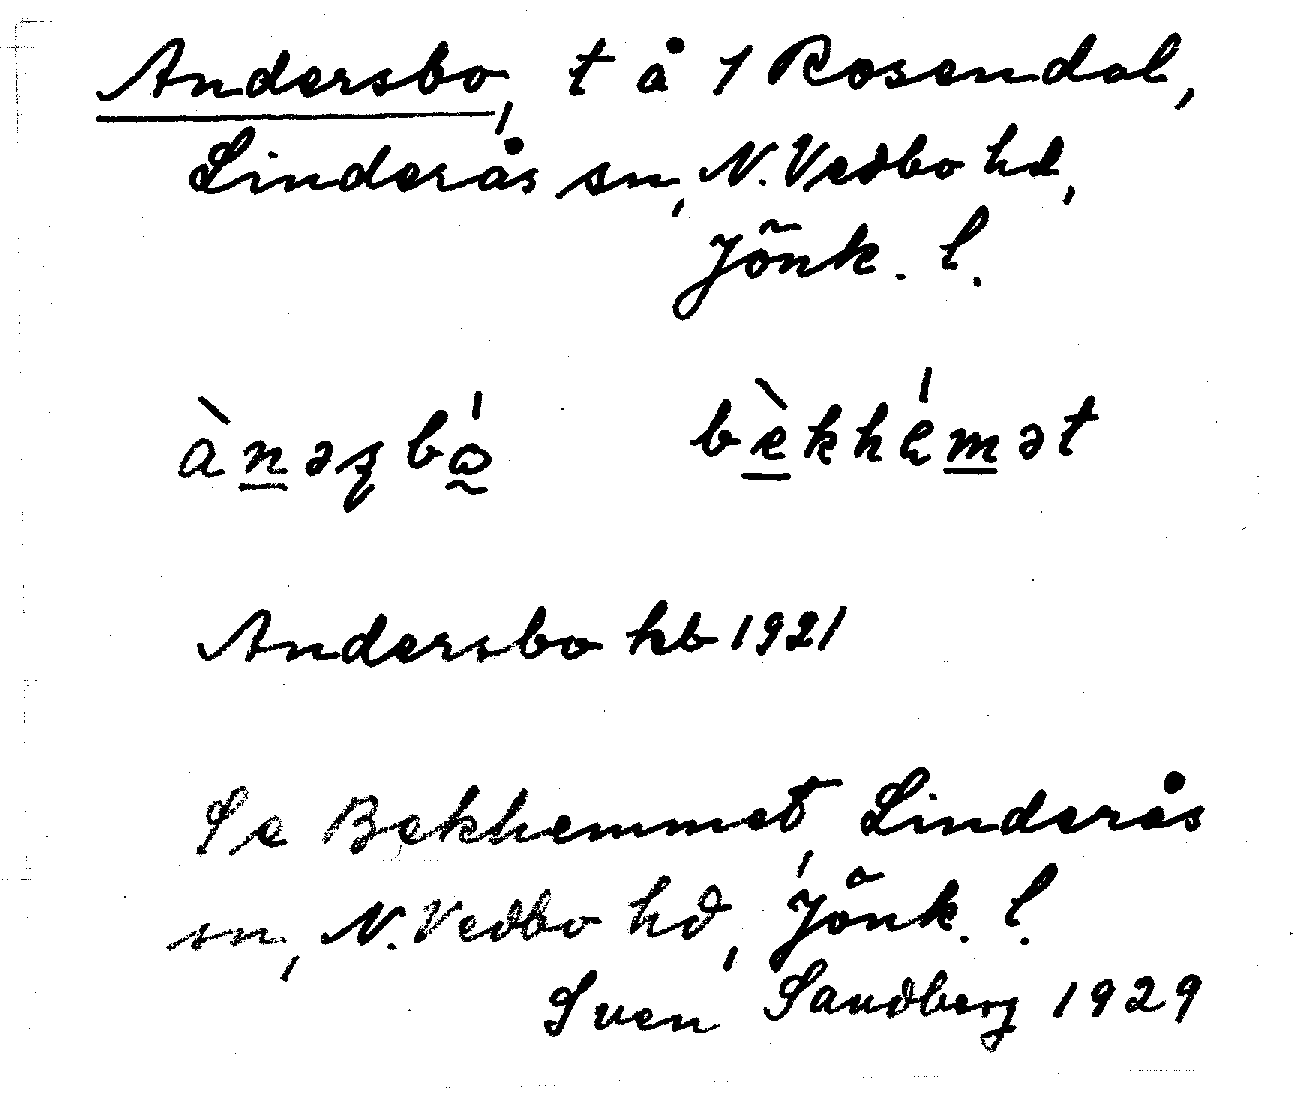 Andersbo, t å 1 Rosendal,
Linderås sn, N. Vedbo hd,
Jönk. l.
ànəʂbó bèkhémət
Andersbo hb 1921
Se Bekhemmet, Linderås
sn, N. Vedbo hd, Jönk. l.
Sven Sandberg 1929